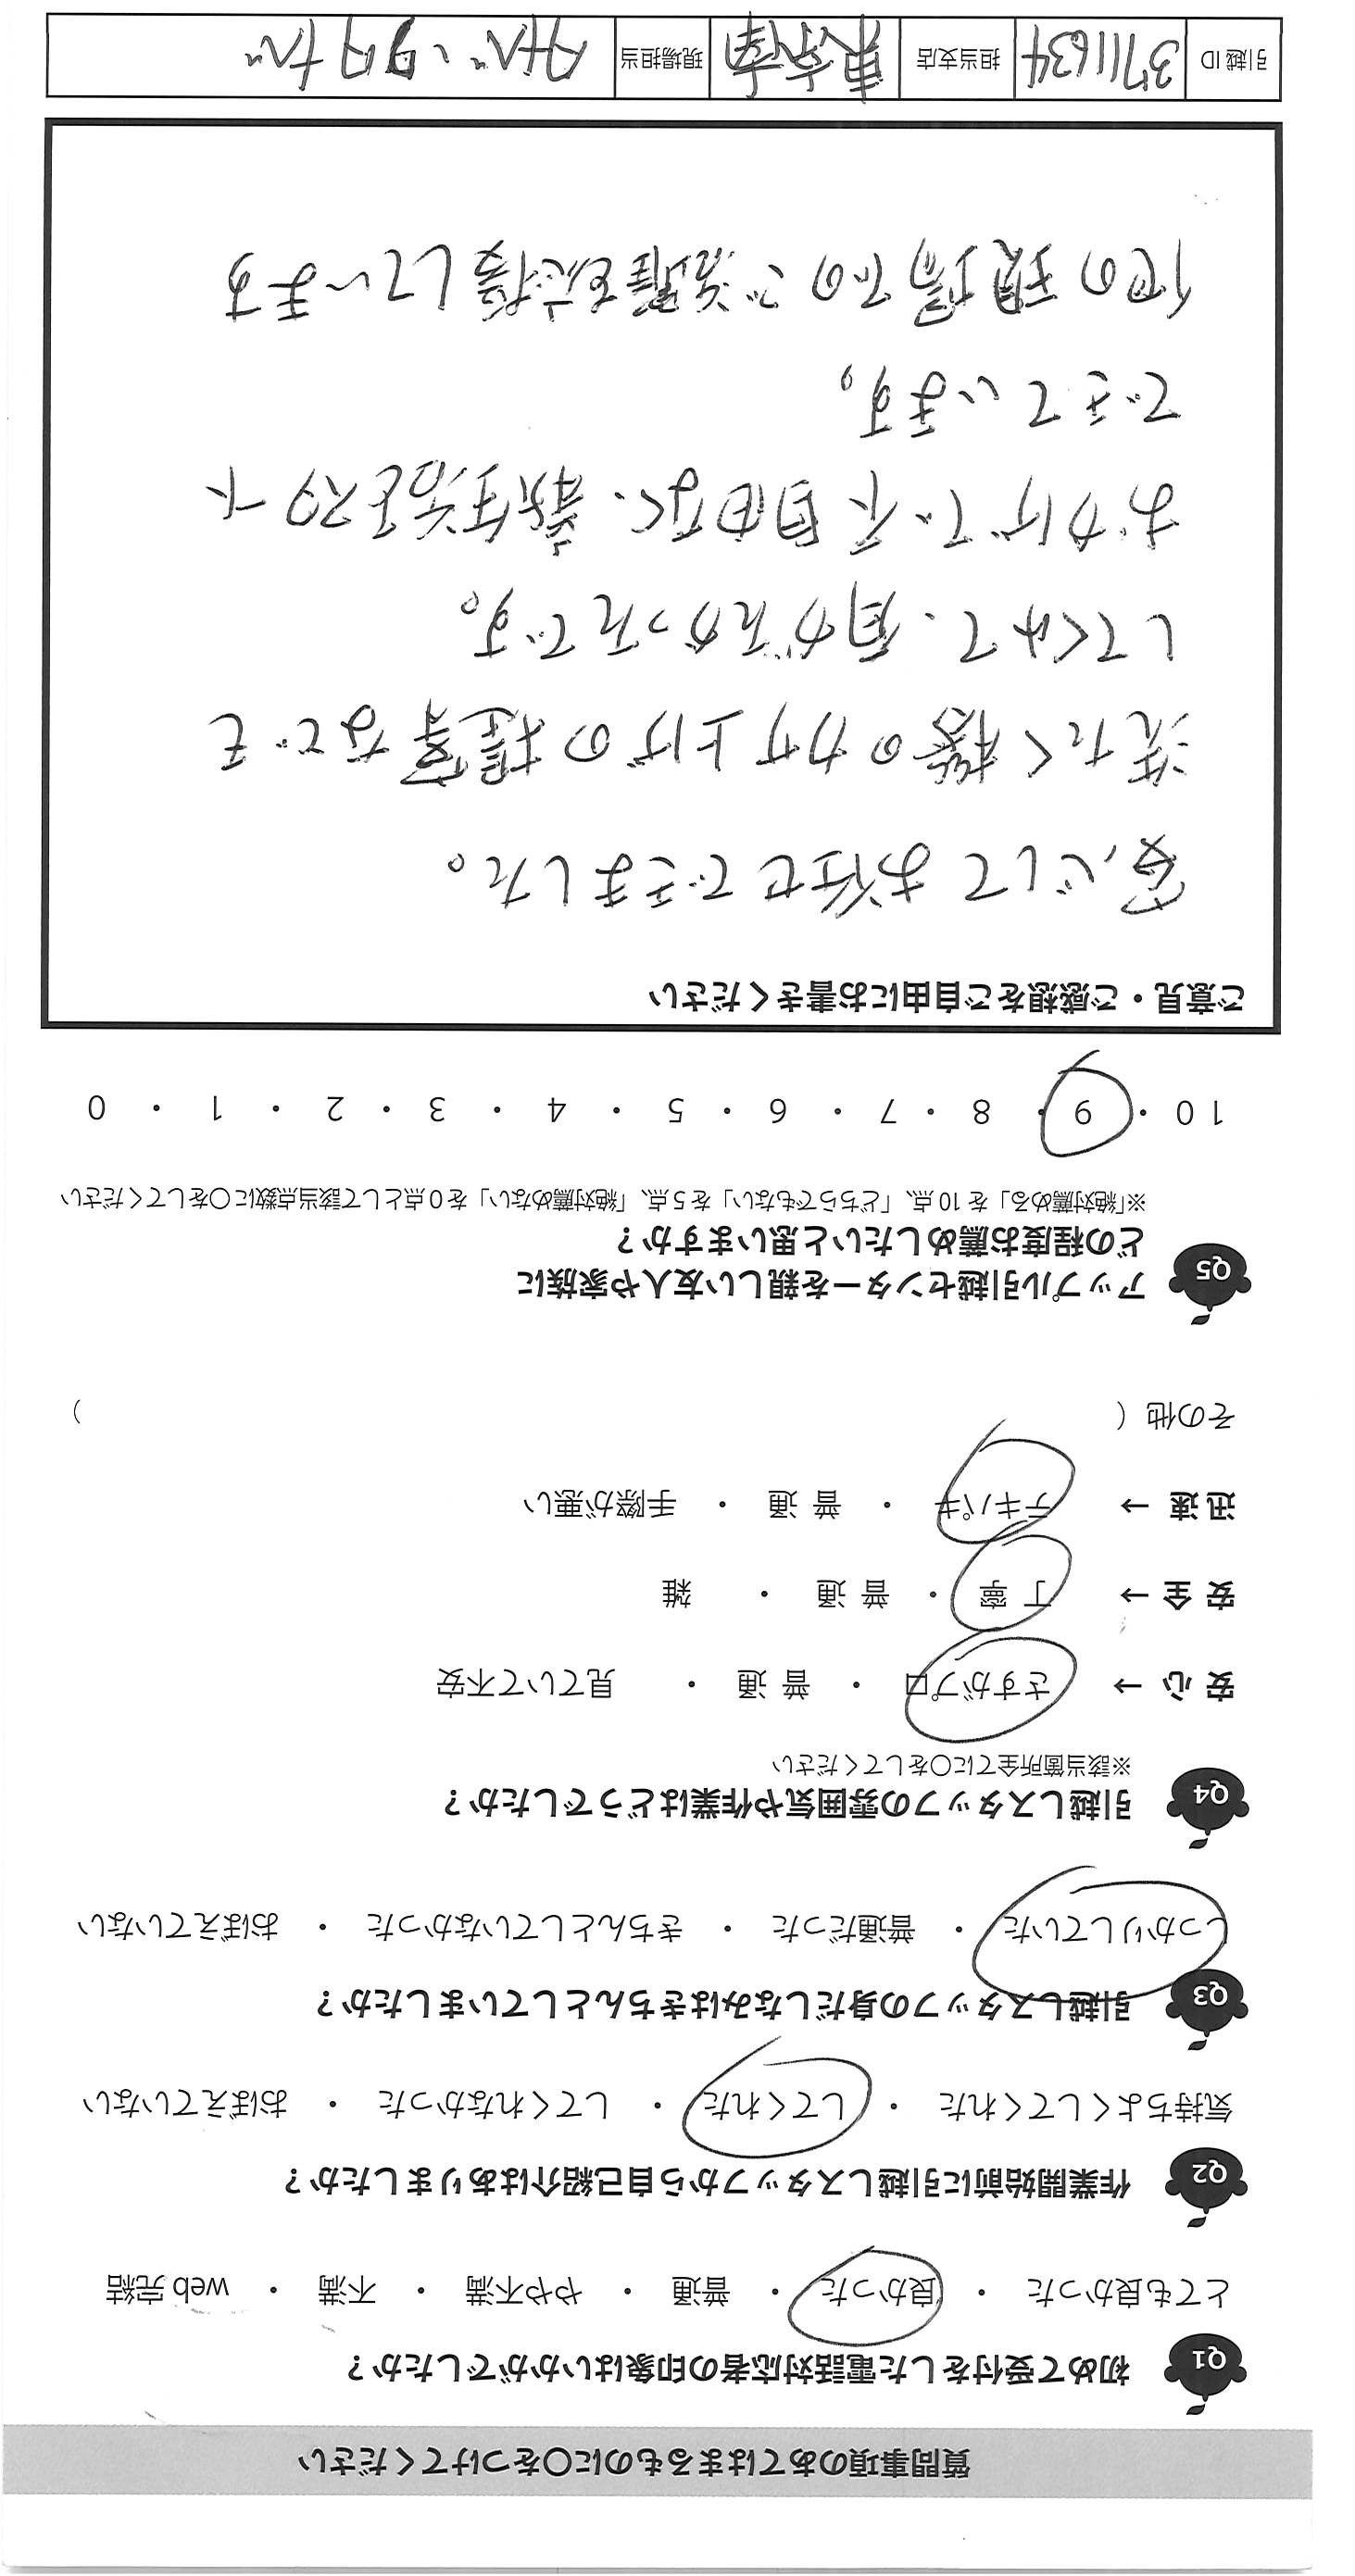 質問事項のあてはまるものに○をつけてください
Q1 初めて受付をした電話対応者の印象はいかがでしたか？
とても良かった ・ 良かった ・ 普通 ・ やや不満 ・ 不満 ・ web 完結
Q2 作業開始前に引越しスタッフから自己紹介はありましたか？
気持ちよくしてくれた ・ してくれた ・ してくれなかった ・ おぼえていない
Q3 引越しスタッフの身だしなみはきちんとしていましたか？
しっかりしていた ・ 普通だった ・ きちんとしていなかった ・ おぼえていない
Q4 引越しスタッフの雰囲気や作業はどうでしたか？
※該当箇所全てに○をしてください
安 心 → さすがプロ ・ 普 通 ・ 見ていて不安
安 全 → 丁 寧 ・ 普 通 ・ 雑
迅 速 → テキパキ ・ 普 通 ・ 手際が悪い
その他（ ）
Q5 アップル引越センターを親しい友人や家族に
どの程度お薦めしたいと思いますか？
※「絶対薦める」を 10 点、「どちらでもない」を 5 点、「絶対薦めない」を 0 点として該当点数に○をしてください
10 ・ 9 ・ 8 ・ 7 ・ 6 ・ 5 ・ 4 ・ 3 ・ 2 ・ 1 ・ 0
ご意見・ご感想をご自由にお書きください
安心してお任せできました。
洗たく機のかさ上げの提案なども
してくれて、有がたかったです。
おかげで不自由なく、新生活をスタート
できています。
他の現場でのご活躍を応援しています
引越 ID 3711634 担当支店 東京南 現場担当